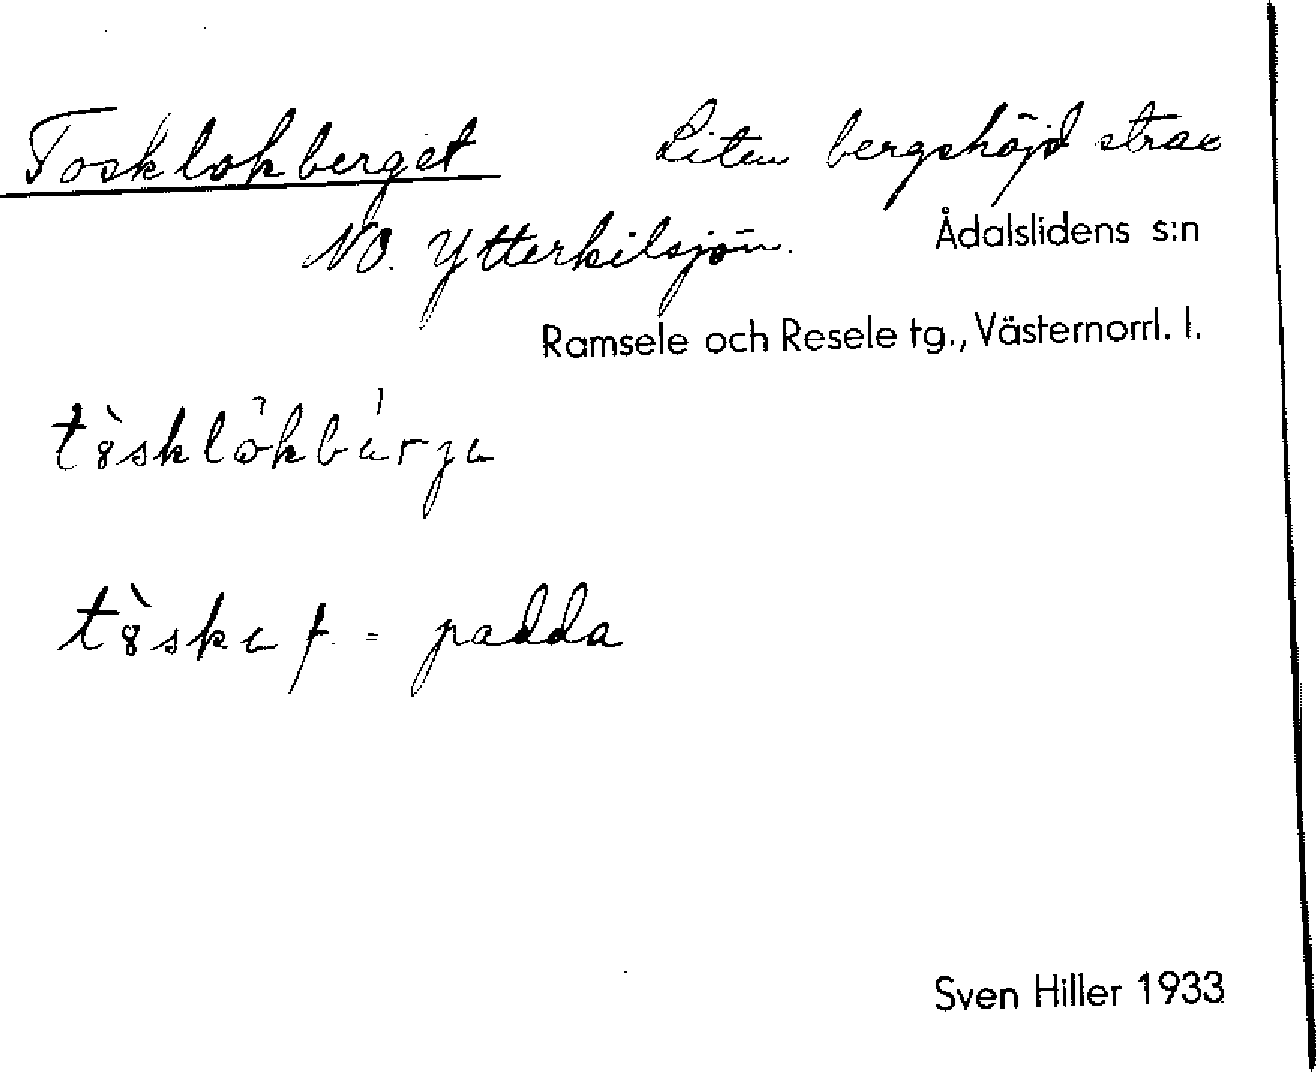 Tosklokberget Liten bergshöjd strax
NO. Ytterkilsjön. Ådalslidens s:n
Ramsele och Resele tg., Västernorrl. l.
f. = padda
Sven Hiller 1933